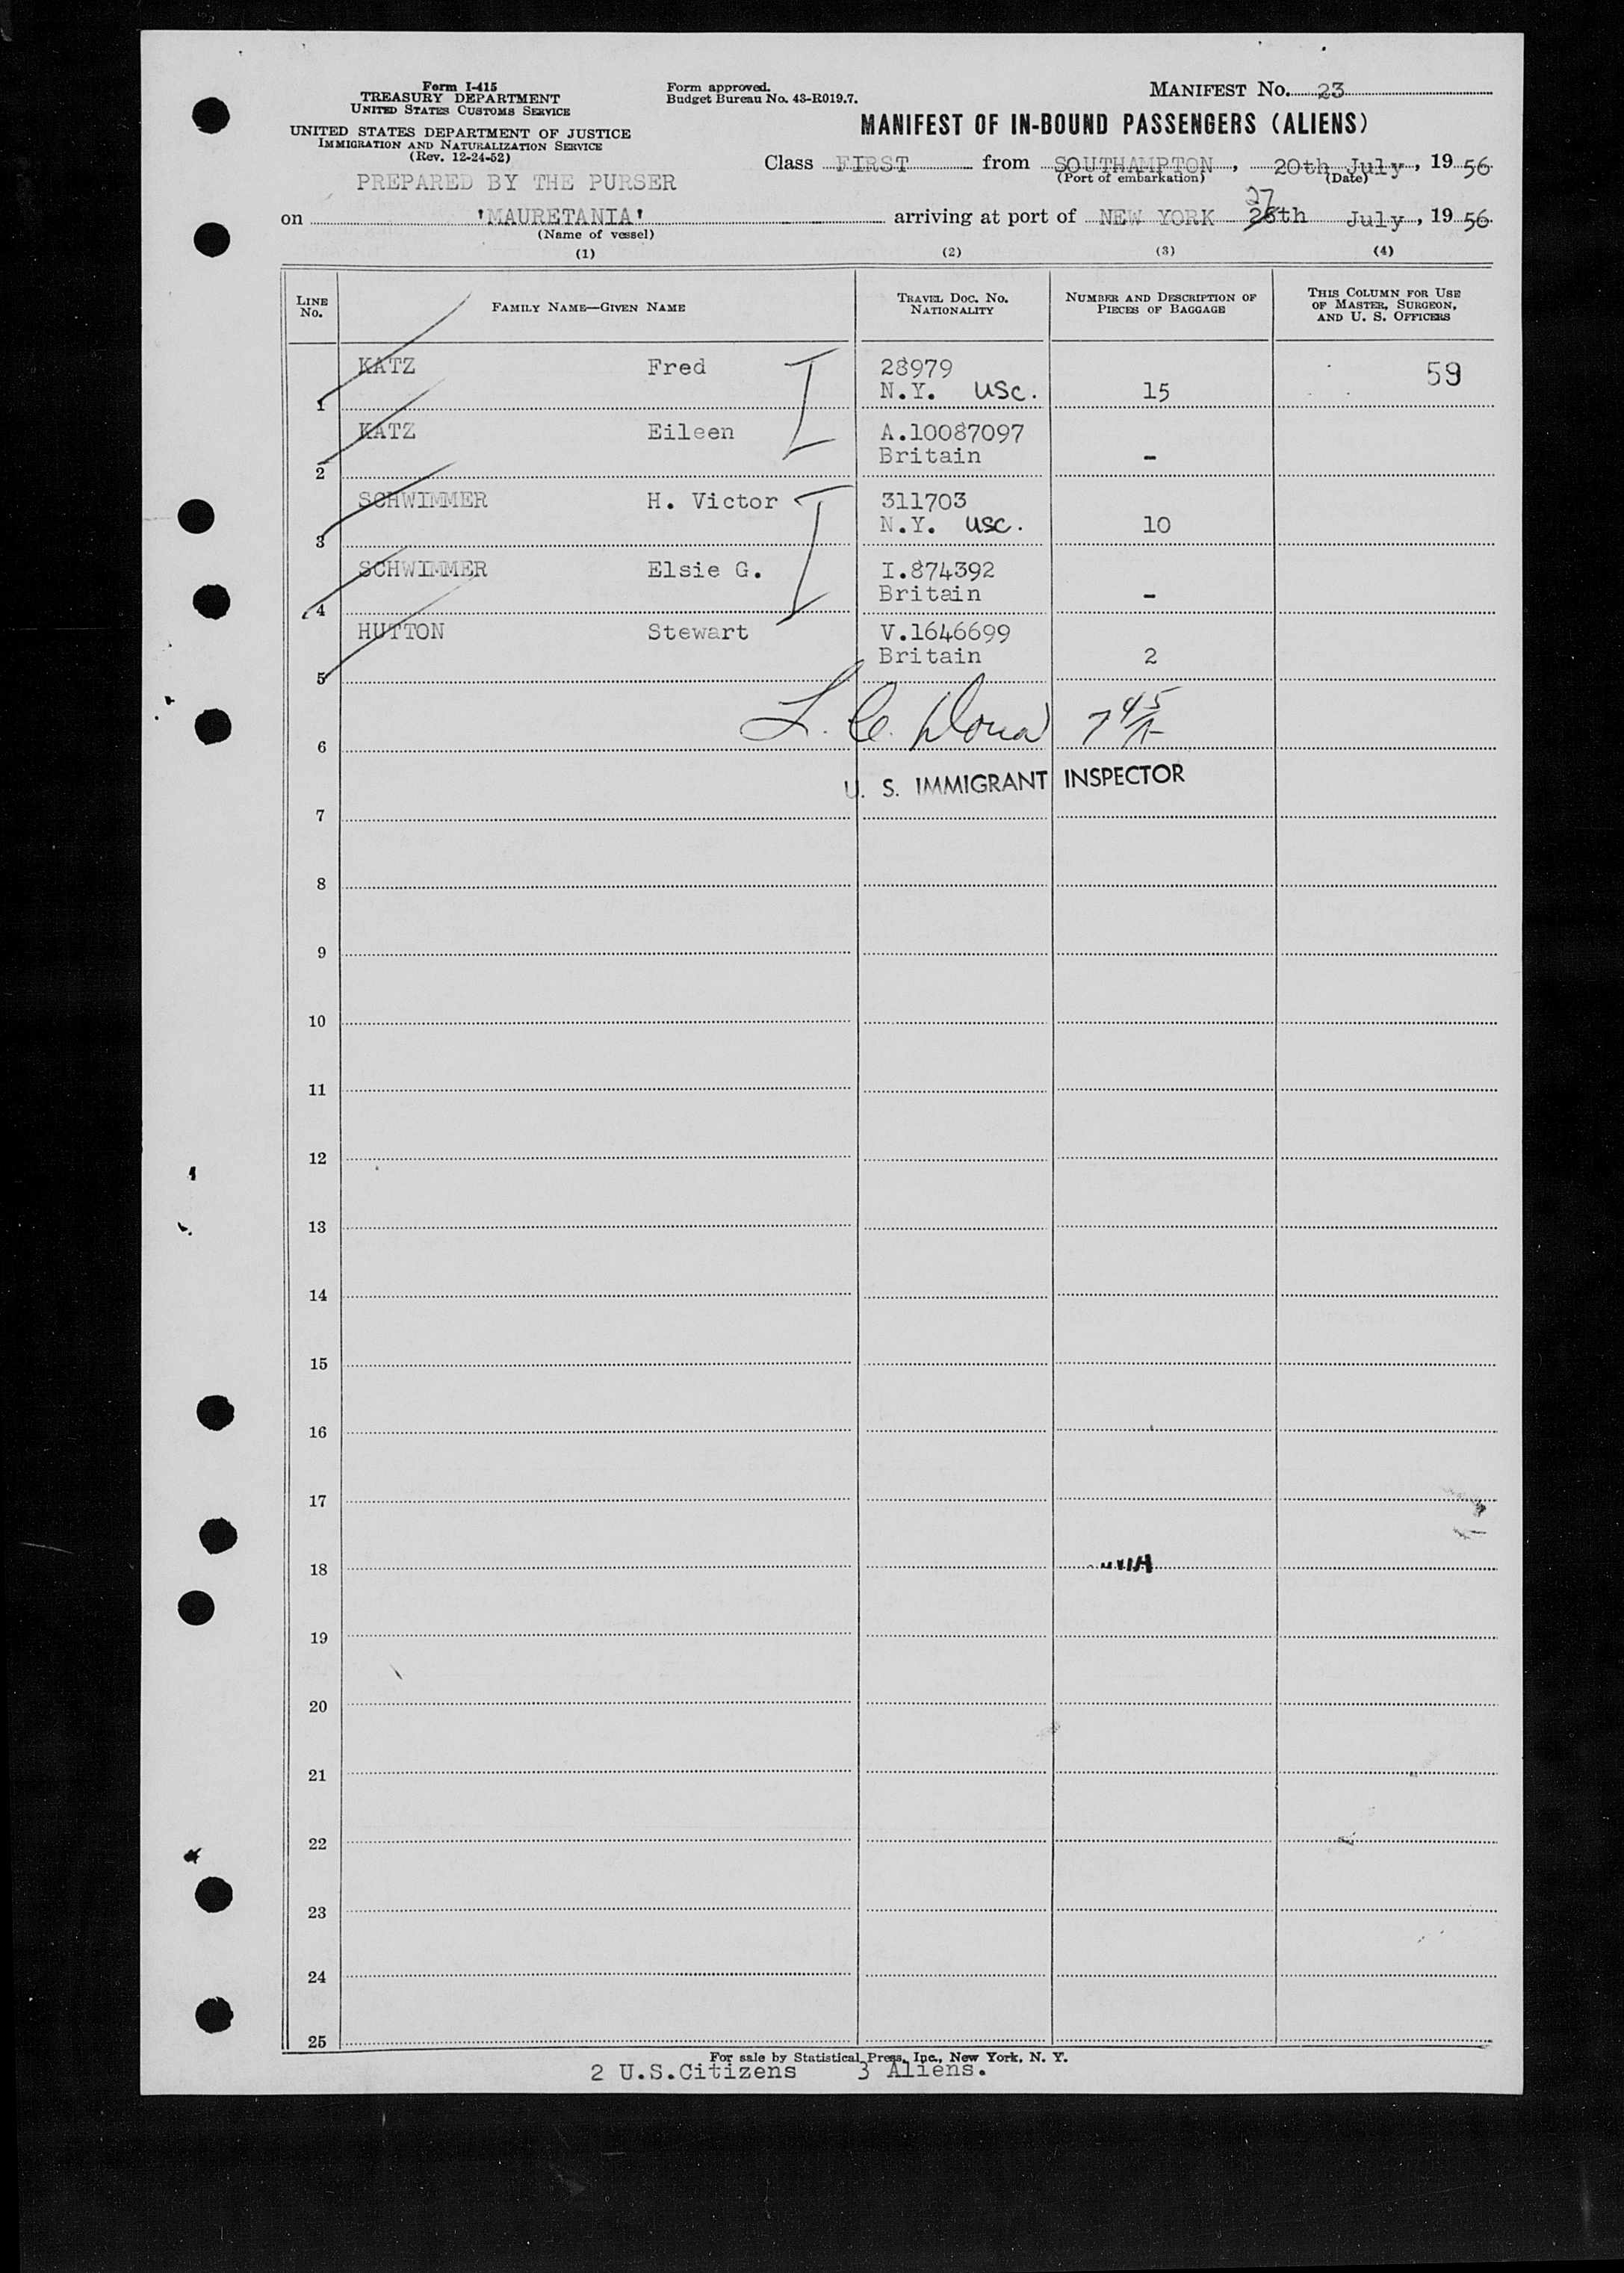 Form I-415
TREASURY DEPARTMENT
UNITED STATES CUSTOMS SERVICE
UNITED STATES DEPARTMENT OF JUSTICE
IMMIGRATION AND NATURALIZATION SERVICE
(Rev. 12-24-52)
PREPARED BY THE PURSER
Form approved.
Budget Bureau No. 43-R019.7.
MANIFEST No. 23
MANIFEST OF IN-BOUND PASSENGERS (ALIENS)
Class FIRST from SOUTHAMPTON, 20th July, 19 56
(Port of embarkation) (Date)
27
on 'MAURETANIA' arriving at port of NEW YORK 26th July, 19 56
(Name of vessel)
(1) (2) (3) (4)
LINE No. FAMILY NAME—GIVEN NAME TRAVEL DOC. No. NATIONALITY NUMBER AND DESCRIPTION OF PIECES OF BAGGAGE THIS COLUMN FOR USE OF MASTER, SURGEON, AND U. S. OFFICERS
KATZ Fred 28979 59
1 N.Y. USC. 15
KATZ Eileen A.10087097
2 Britain -
SCHWIMMER H. Victor 311703
3 N.Y. USC. 10
SCHWIMMER Elsie G. I.874392
4 Britain -
HUTTON Stewart V.1646699
5 Britain 2
6 L. C.
U. S. IMMIGRANT INSPECTOR
7
8
9
10
11
12
13
14
15
16
17
18
19
20
21
22
23
24
25
For sale by Statistical Press, Inc., New York, N. Y.
2 U.S.Citizens 3 Aliens.